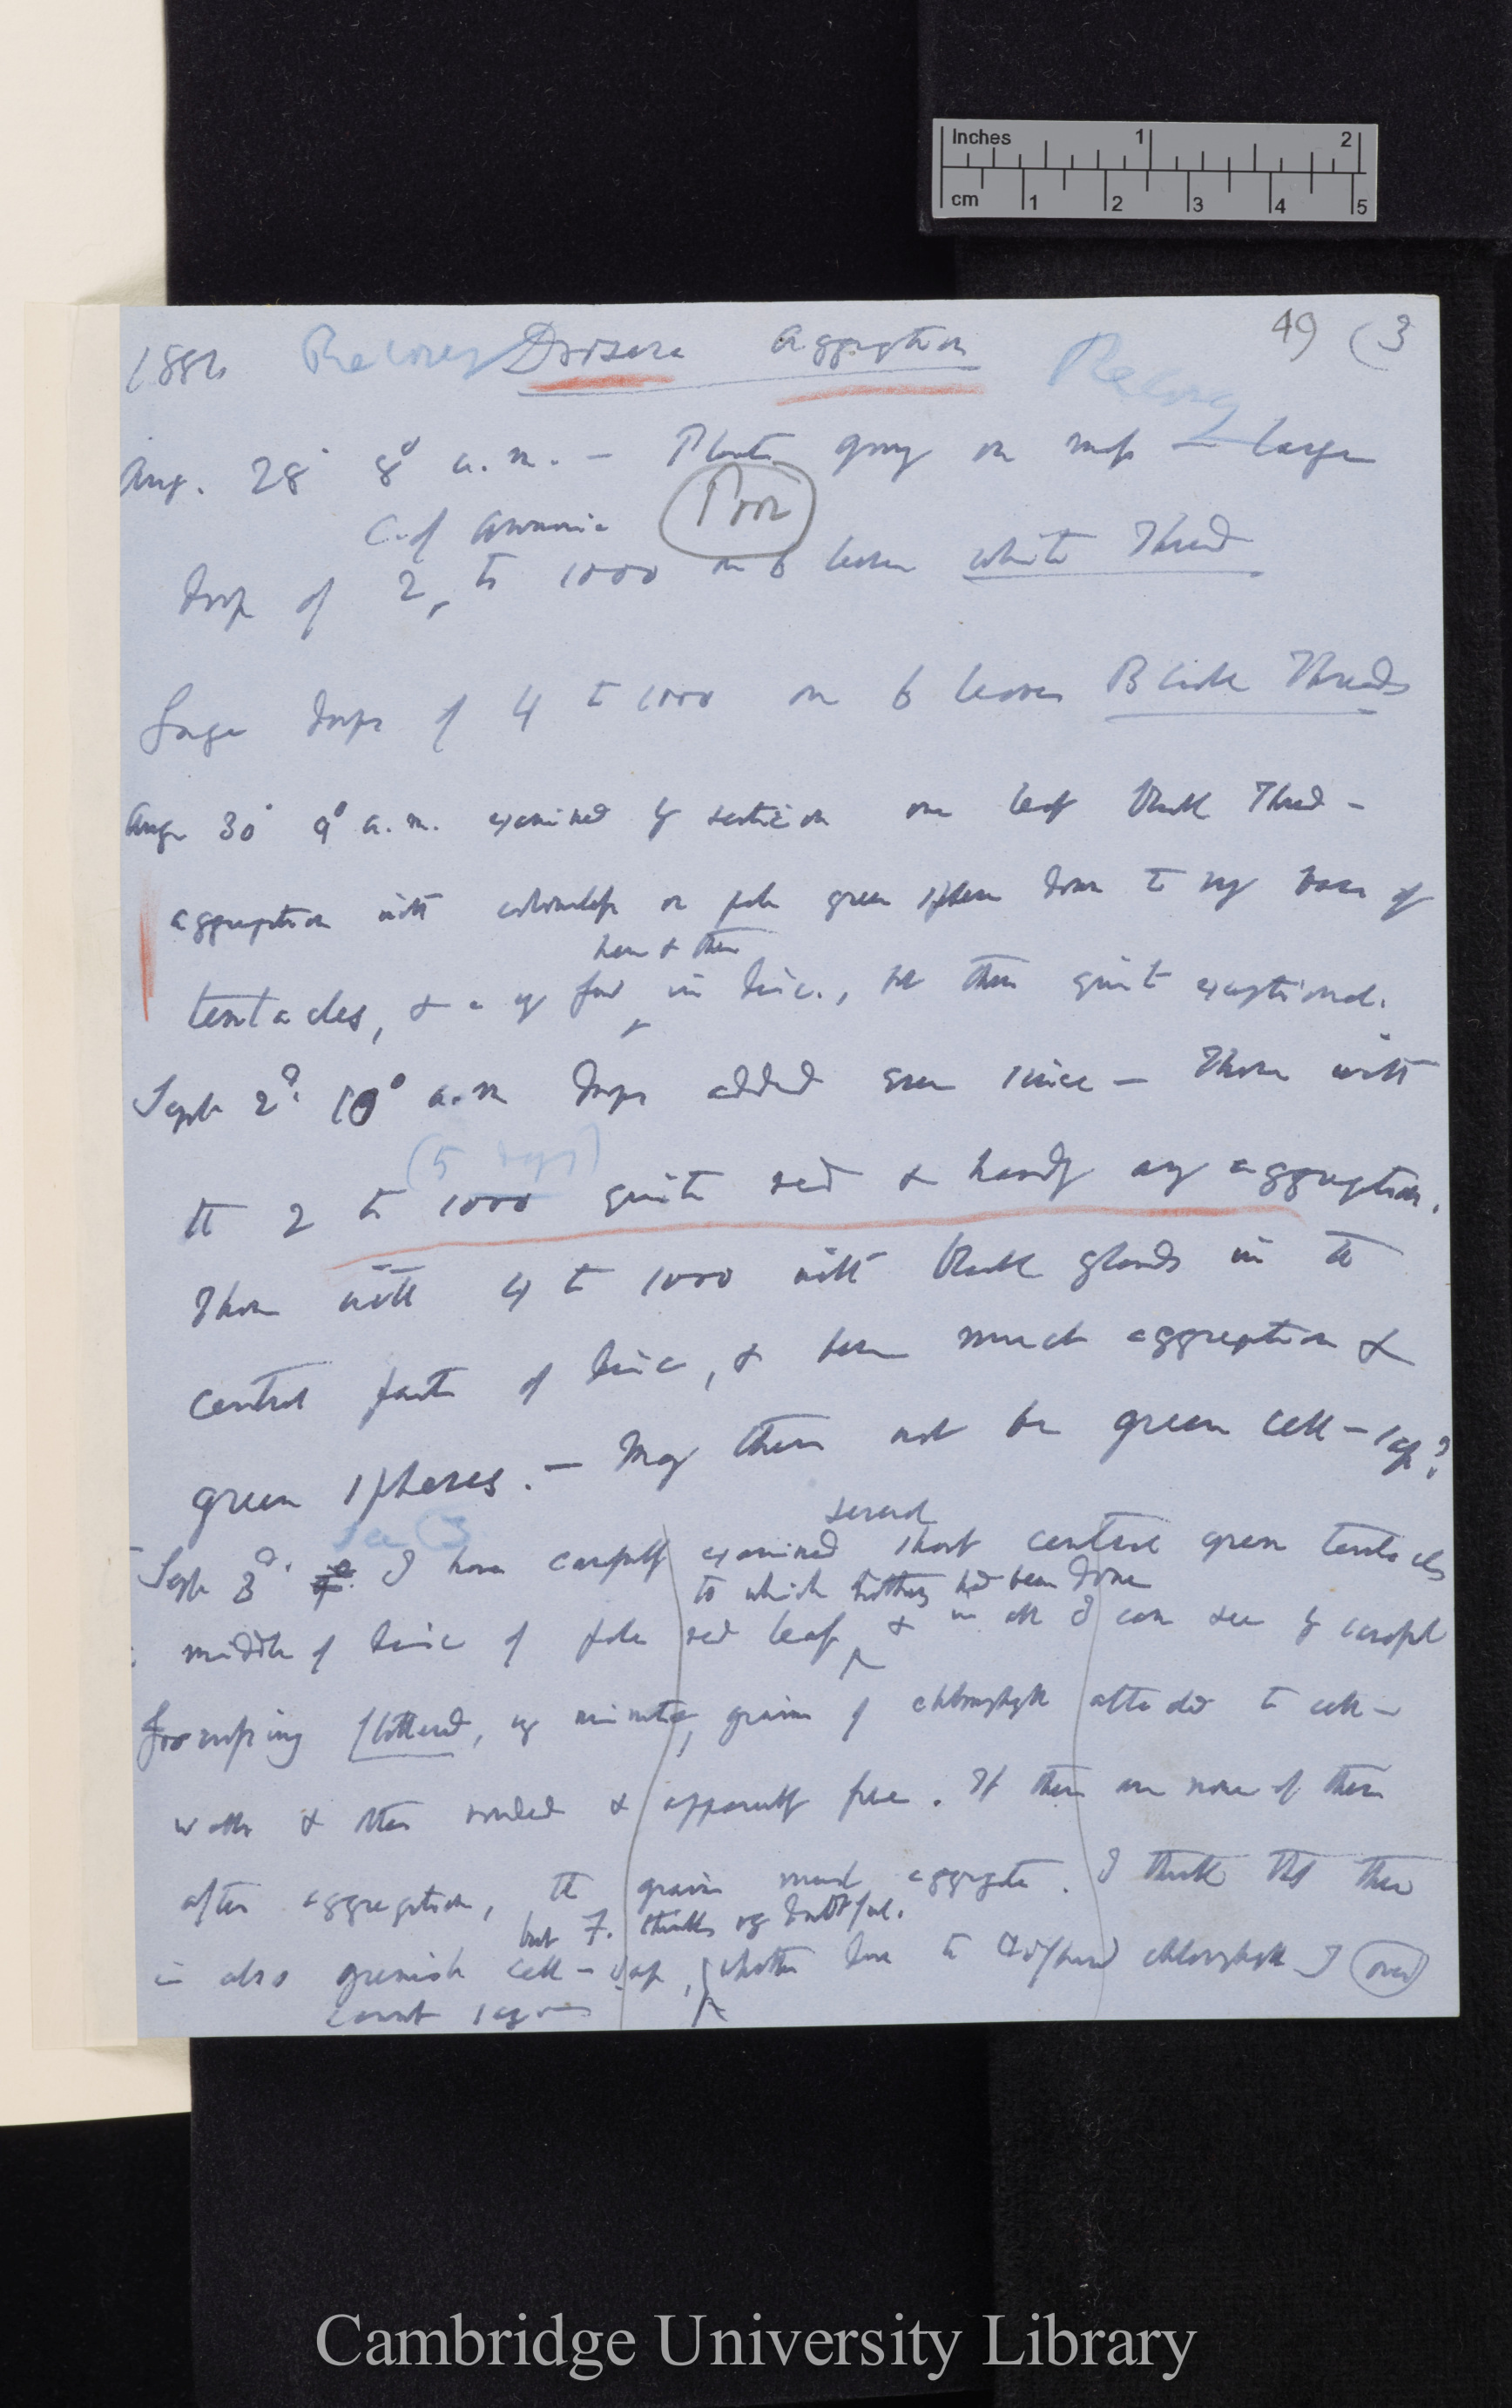 Inches 1 2
cm 1 2 3 4 5
49 (3
1881 Recovery Drosera Aggregation Recovery
Aug. 28 8° a.m. — Plants growing on — large
C. of Ammonia Poor
drops of 2 to 1000 on 6 leaves white Thread
Large drops of 4 to 1000 on 6 leaves Black Threads
Aug 30 9° a.m. examined by section one leaf black Thread —
aggregation with colourless or pale green spheres down to very base of
here & there
tentacles, & a very few in disc., but these quite exceptional.
Sept 2d. 10° a.m drops added ever since — Those with
(5 days)
the 2 to 1000 quite red & hardly any aggregation.
Those with 4 to 1000 with black glands in the
central parts of disc, & here much aggregation &
green spheres. — May there not be green cell-sap?
see (3
several
Sept 3d. I have carefully examined short central green tentacles
to which nothing had been done
middle of disc of pale red leaf, & in all I can see by careful
focussing flattened, very minute, grains of chlorophyll attached to cell-
walls & others rounded & apparently free. If there are none of these
after aggregation, the grains must aggregate. I think that there
but F. thinks very doubtful.
is also greenish cell-sap, whether due to diffused chlorophyll I (over)
cannot say
Cambridge University Library